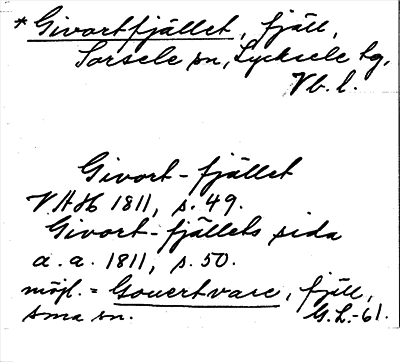 * Givortfjället, fjäll,
Sorsele sn, Lycksele lg,
Vb. l.
Givort-fjället
VAH 1811, s. 49.
Givort-fjällets sida
a. a. 1811, s. 50.
möjl. = Gouertvare, fjäll,
sma sn. G.L.-61.